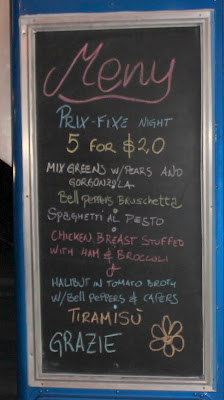 Menu
PRIX-FIXE NIGHT
5 FOR $20
MIX GREENS W/PEARS AND
GORGONZOLA
Bell Peppers Bruschetta
SPAGHETTI AL PESTO
CHICKEN BREAST STUFFED
WITH HAM & BROCCOLI
HALIBUT IN TOMATO BROTH
W/BELL PEPPERS & CAPERS
TIRAMISÙ
GRAZIE